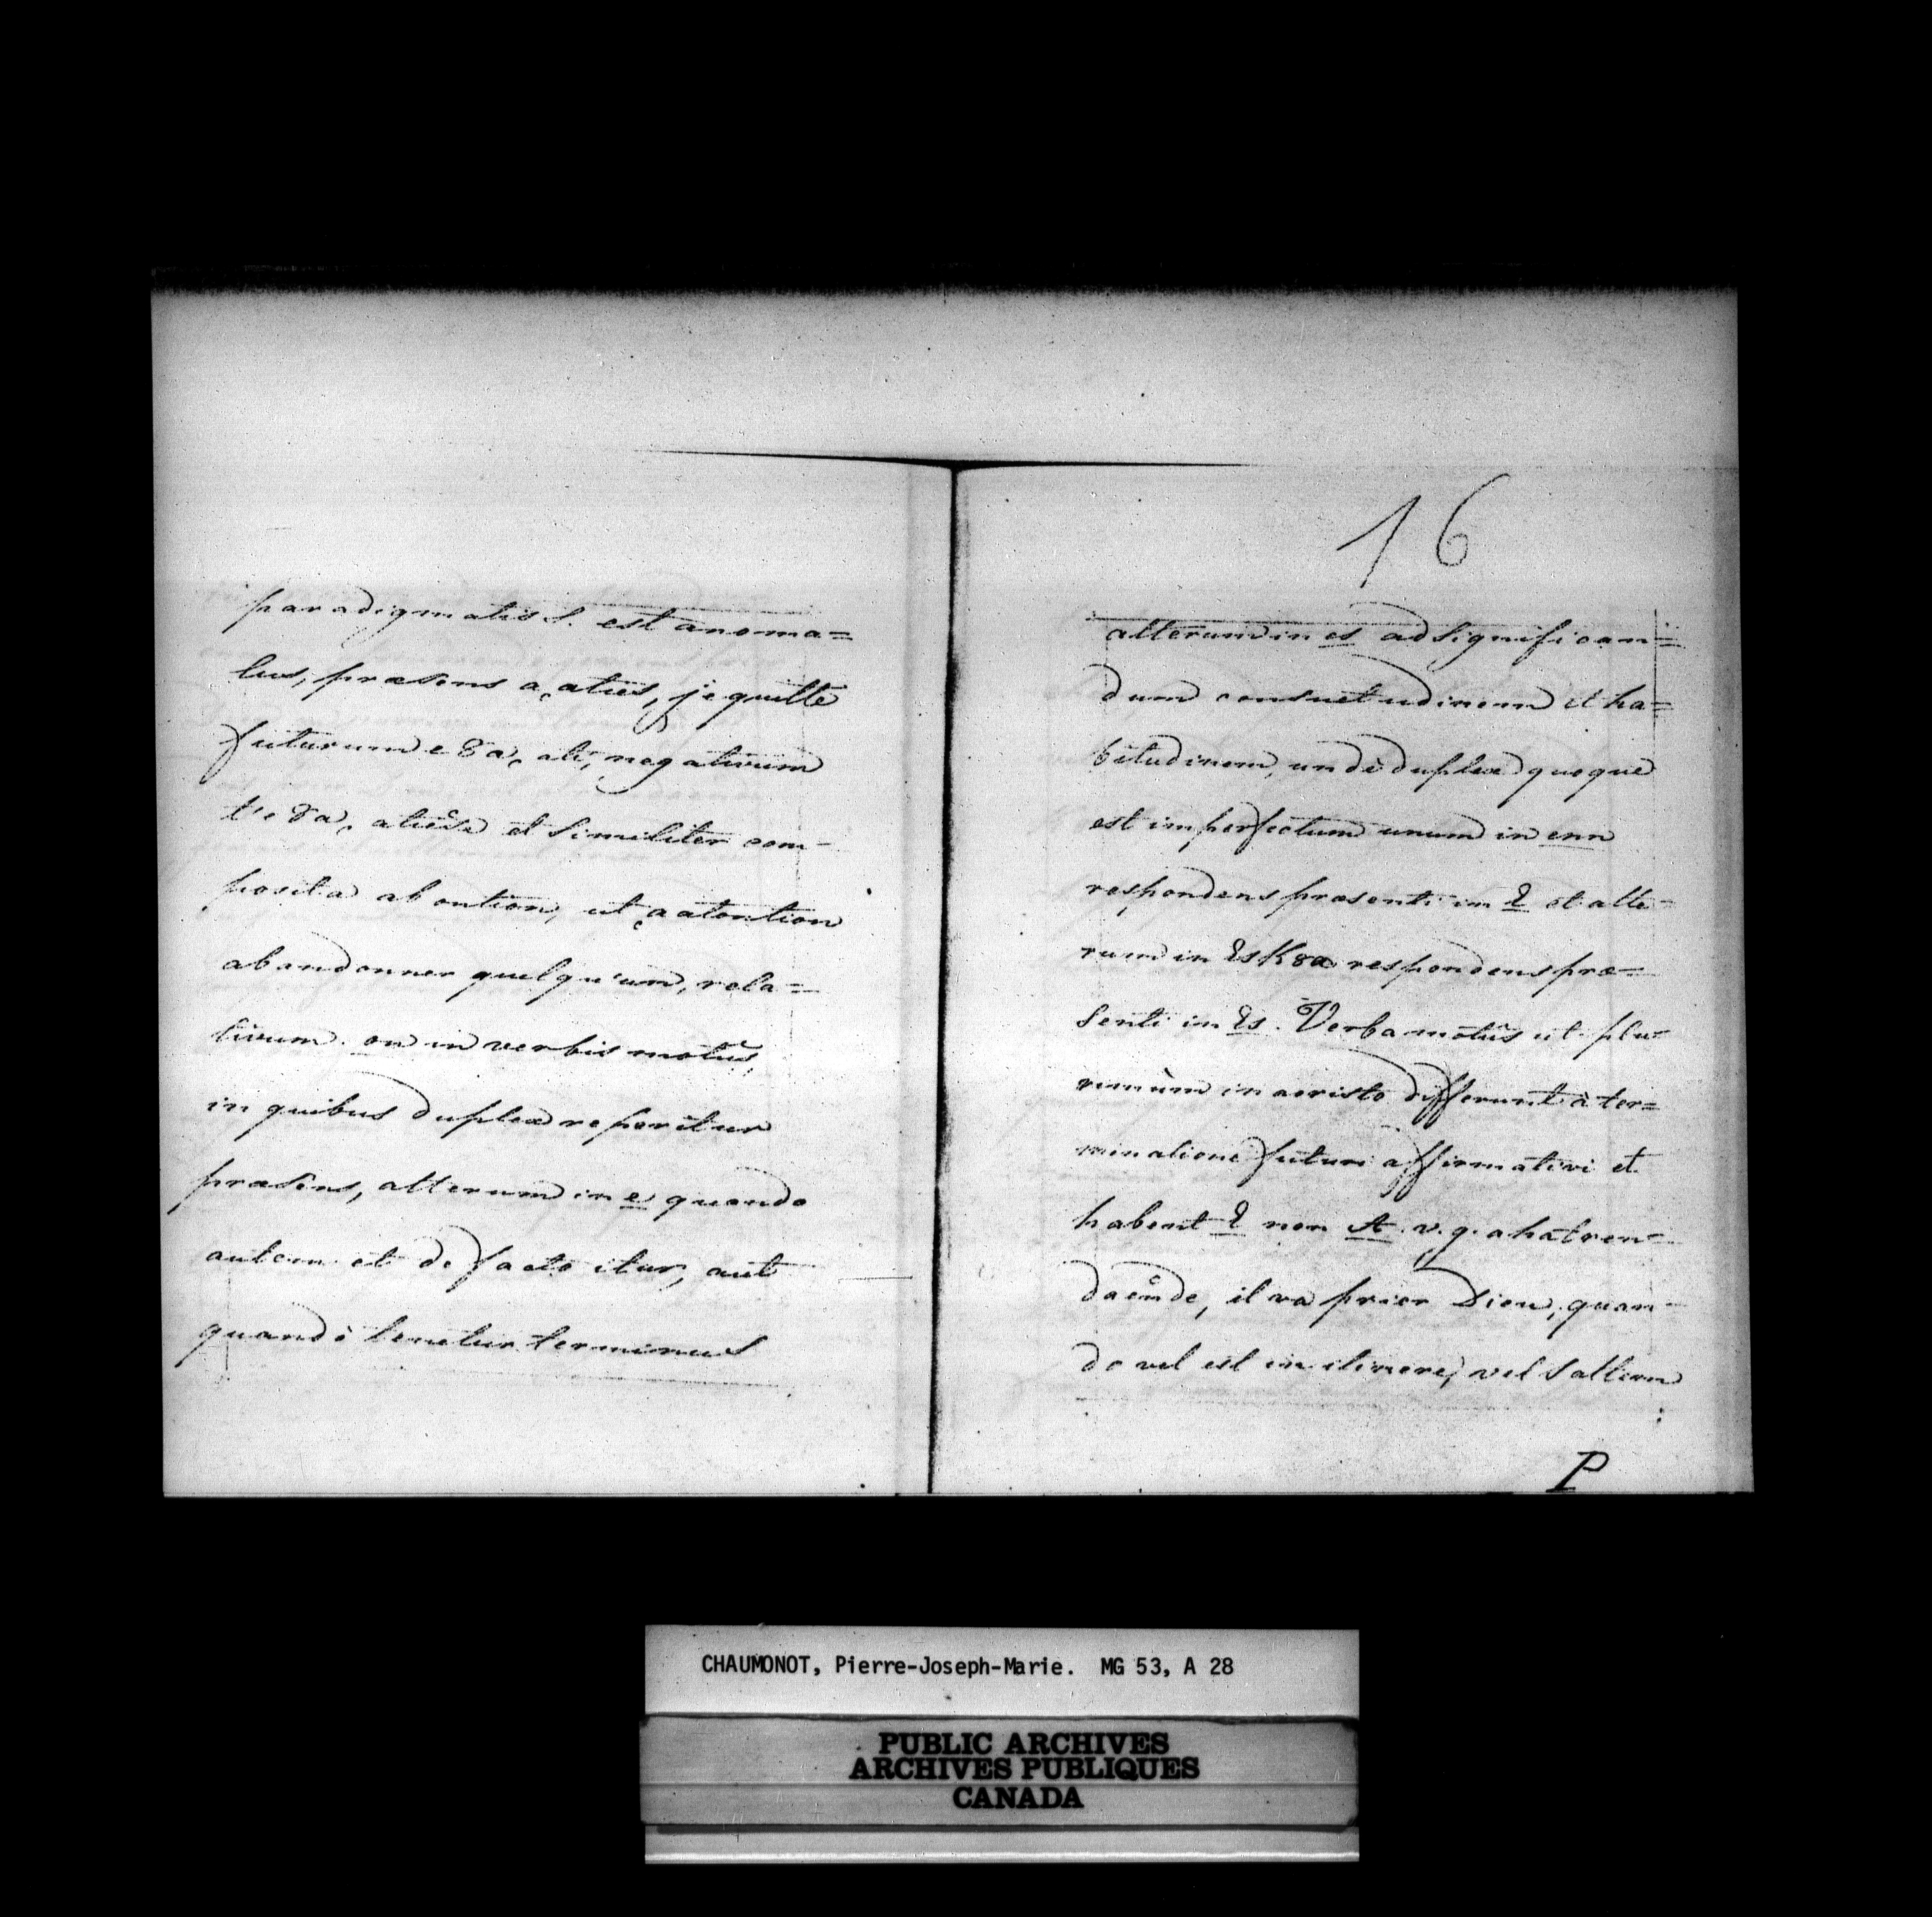 paradigmatis S. est anoma=
lus, præsens a, aties, je quitte
futurum e8a, ati, negativum
te8a, and similiter com-
posita ab ontion, ut aatontion
abandonner quelqu'un, rela=
tivum on in verbis motûs,
in quibus duplex reperitur
præsens, alterum in e quando
autem et de facto itur, aut
quandò tenetur terminus
16
alterum in es ad significan=
dum consuetudinem et ha=
bitudinem, undè duplex quoque
est imperfectum unum in enn
respondens præsenti in E et alte-
rum in EsK8a respondens præ=
senti in Es. Verba motûs ut plu-
rimùm in aoristo differunt à ter=
minatione futuri affirmativi et
habent E non A v.g. ahatren-
daènde, il va prier Dieu, quan-
do vel est in itinere, vel saltem
P
CHAUMONOT, Pierre-Joseph-Marie. MG 53, A 28
PUBLIC ARCHIVES
ARCHIVES PUBLIQUES
CANADA